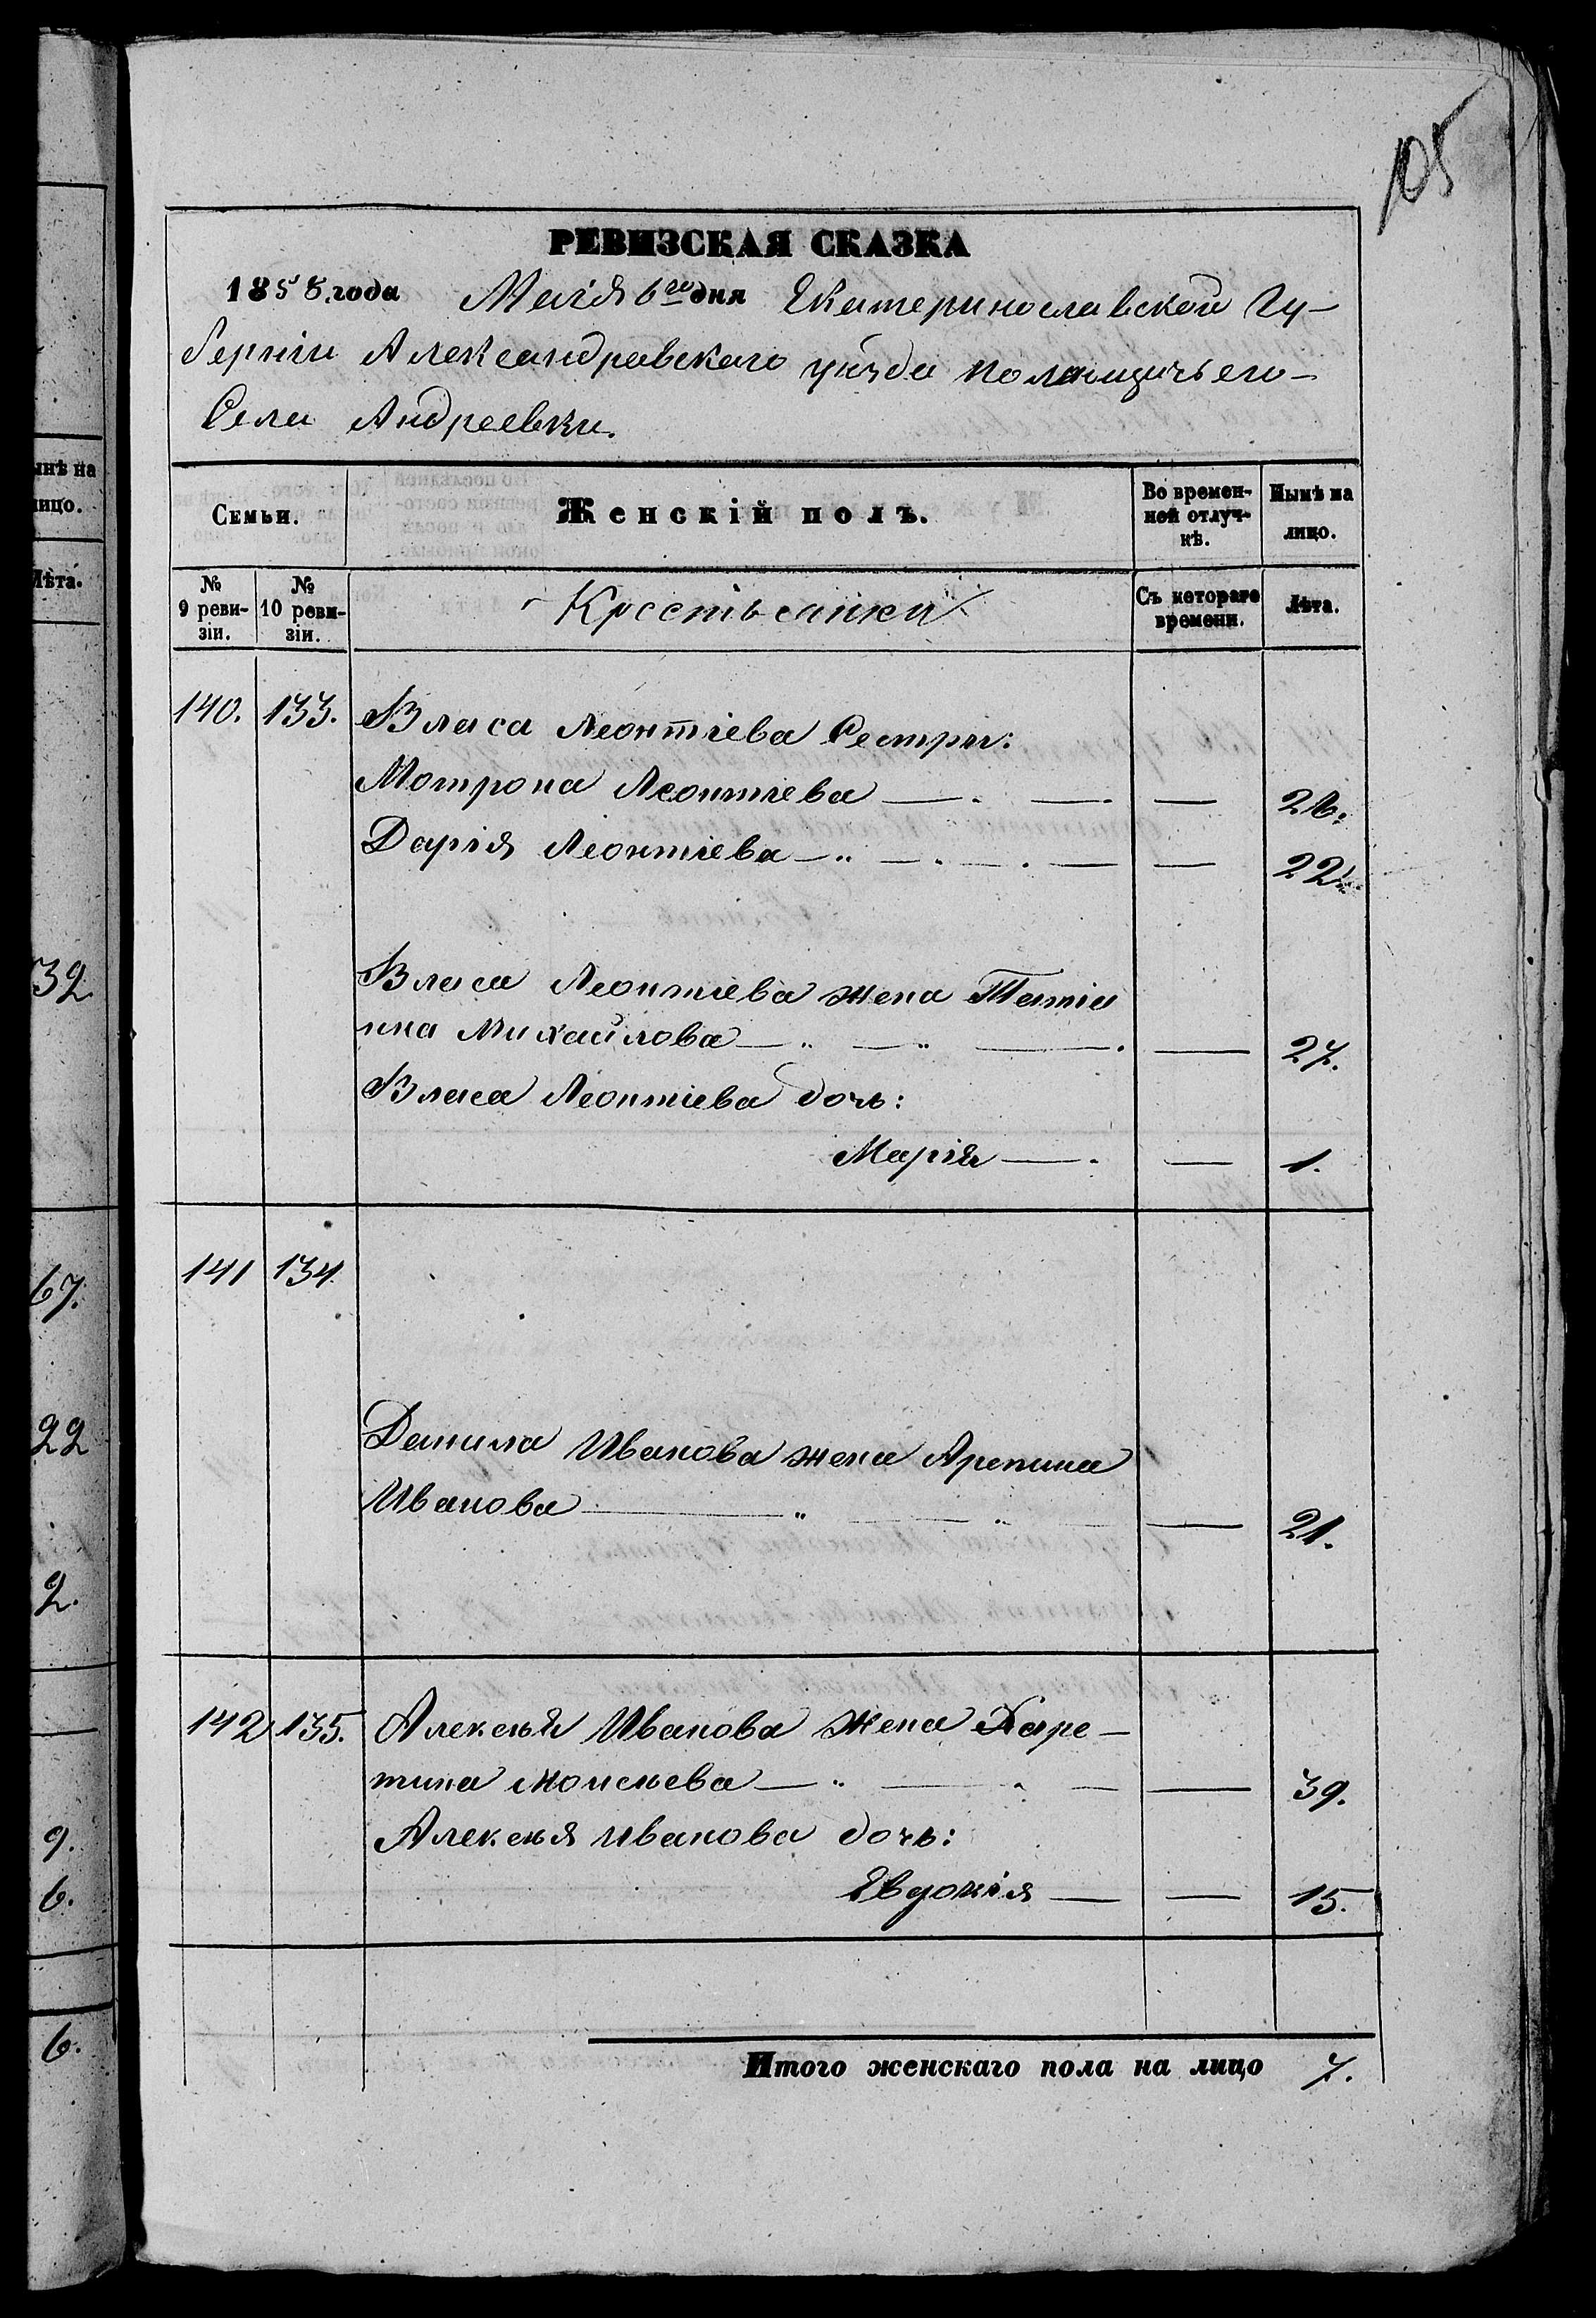 105
РЕВИЗСКАЯ СКАЗКА
1858 года Маія 6го дня Екатеринославской Гу-
берніи Александровскаго уѣзда помѣщичьего
Села Андреевки.
Семьи. Женскій полъ. Во времен-ной отлуч-кѣ. Нынѣ на лицо.
№ 9 реви-зіи. № 10 реви-зіи. Крестьянки Съ котораго времени. Лѣта.
140. 133. Власа Леонтіева Сестры:
Мотрона Леонтіева — — — 26.
Дарія Леонтіева — — — 22.
Власа Леонтіева жена Татіа
нна Михайлова — — — 27.
Власа Леонтіева дочь:
Марія — — 1.
141 134
Данила Иванова жена Арепина
Иванова — — — 21.
142 135. Алексѣя Иванова жена Харе-
тина Моисѣева — — — 39.
Алексѣя Иванова дочь:
Евдокія — — 15.
Итого женскаго пола на лицо 7.
ынѣ на
лицо.
Лѣта.
32
67.
22
2.
9.
6.
6.